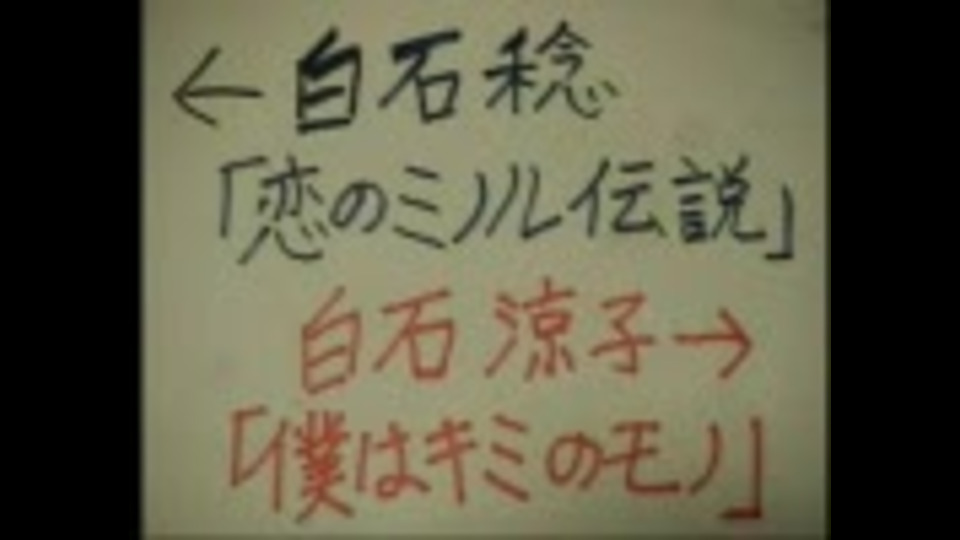 ←白石稔
「恋のミノル伝説」
白石涼子→
「僕はキミのモノ」